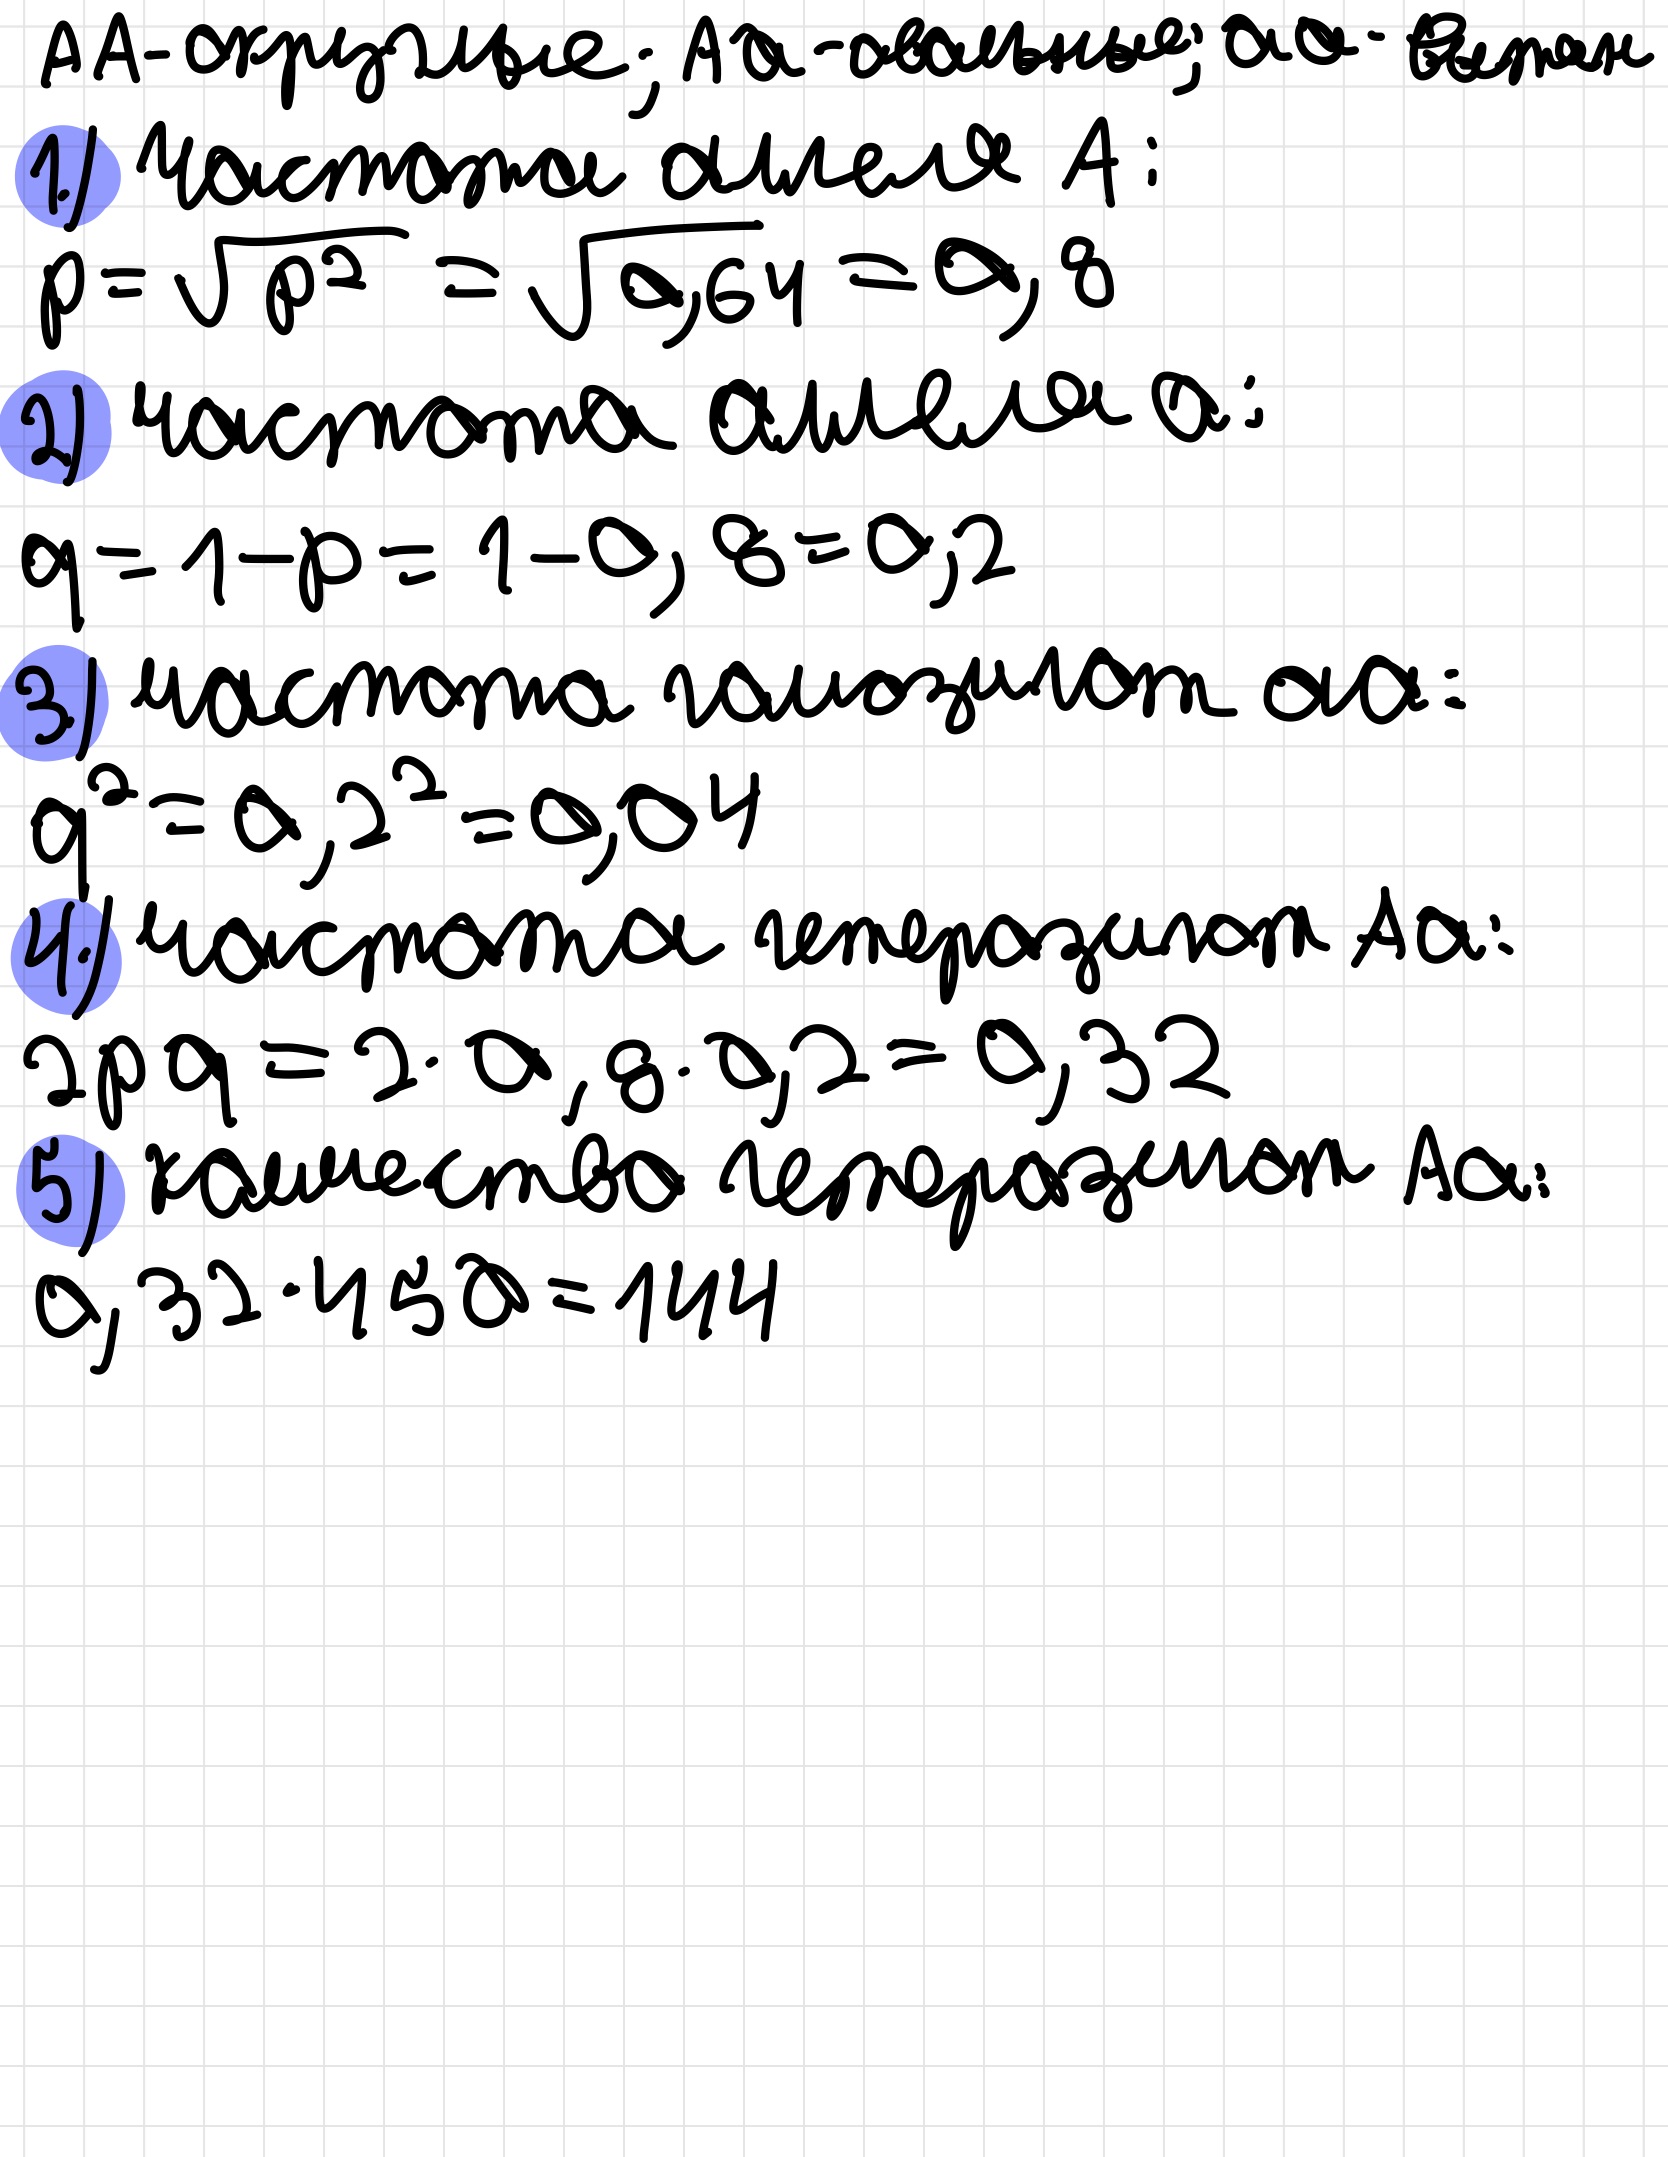 AA - округлые; Aa - овальные; aa - вытян
1) Частота аллеля A:
p = √p² = √0,64 = 0,8
2) частота аллеля a:
q = 1 - p = 1 - 0,8 = 0,2
3) частота гомозигот aa:
q² = 0,2² = 0,04
4) частота гетерозигот Aa:
2pq = 2 · 0,8 · 0,2 = 0,32
5) количество гетерозигот Aa:
0,32 · 450 = 144